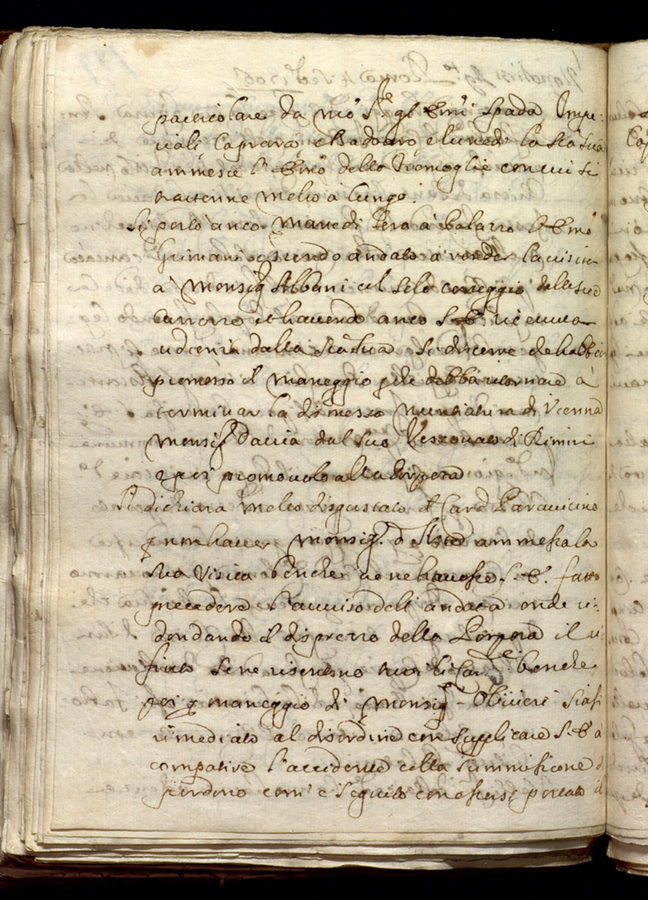 particolare da mo.ⁱ Sⁱ gl' Emⁱ Spada Impe:
riali Caprara, e Badoaro, e lunedì la Stassa
ammesse l' Emo della Tramoglie con cui si
trattenne molto à lungo.
Si portò anco Martedì sera à Palazzo l' Emo
Grimani essendo andato a render la visita
à Monsig Albani col solo corteggio della sua
Carrozza et havendo anco S. E. ricevuta
udienza dalla Stassua si discorre che habbi
promosso il maneggio che debba ritornare à
terminar la dimessa Nuntiatura di Vienna
Monsig.r Davia dal suo Vescovato di Rimini
per promoverlo alla Porpora
Si dichiara molto disgustato il Card Paravicino
non haver Monsig.r d' ammessa la
sua visita benche ne havesse S. E. fatto
precedere l' avviso dell' andata onde ri:
dondando il disprezzo della Porpora il ri
fiuto se ne risentono tutti li Car.li benche
per maneggio di Monsig.r Olivieri siasi
rimediato al disordine con supplicare S. E. a
compatire l' accidente colla summissione d
perdono com' è seguito con essersi portato d